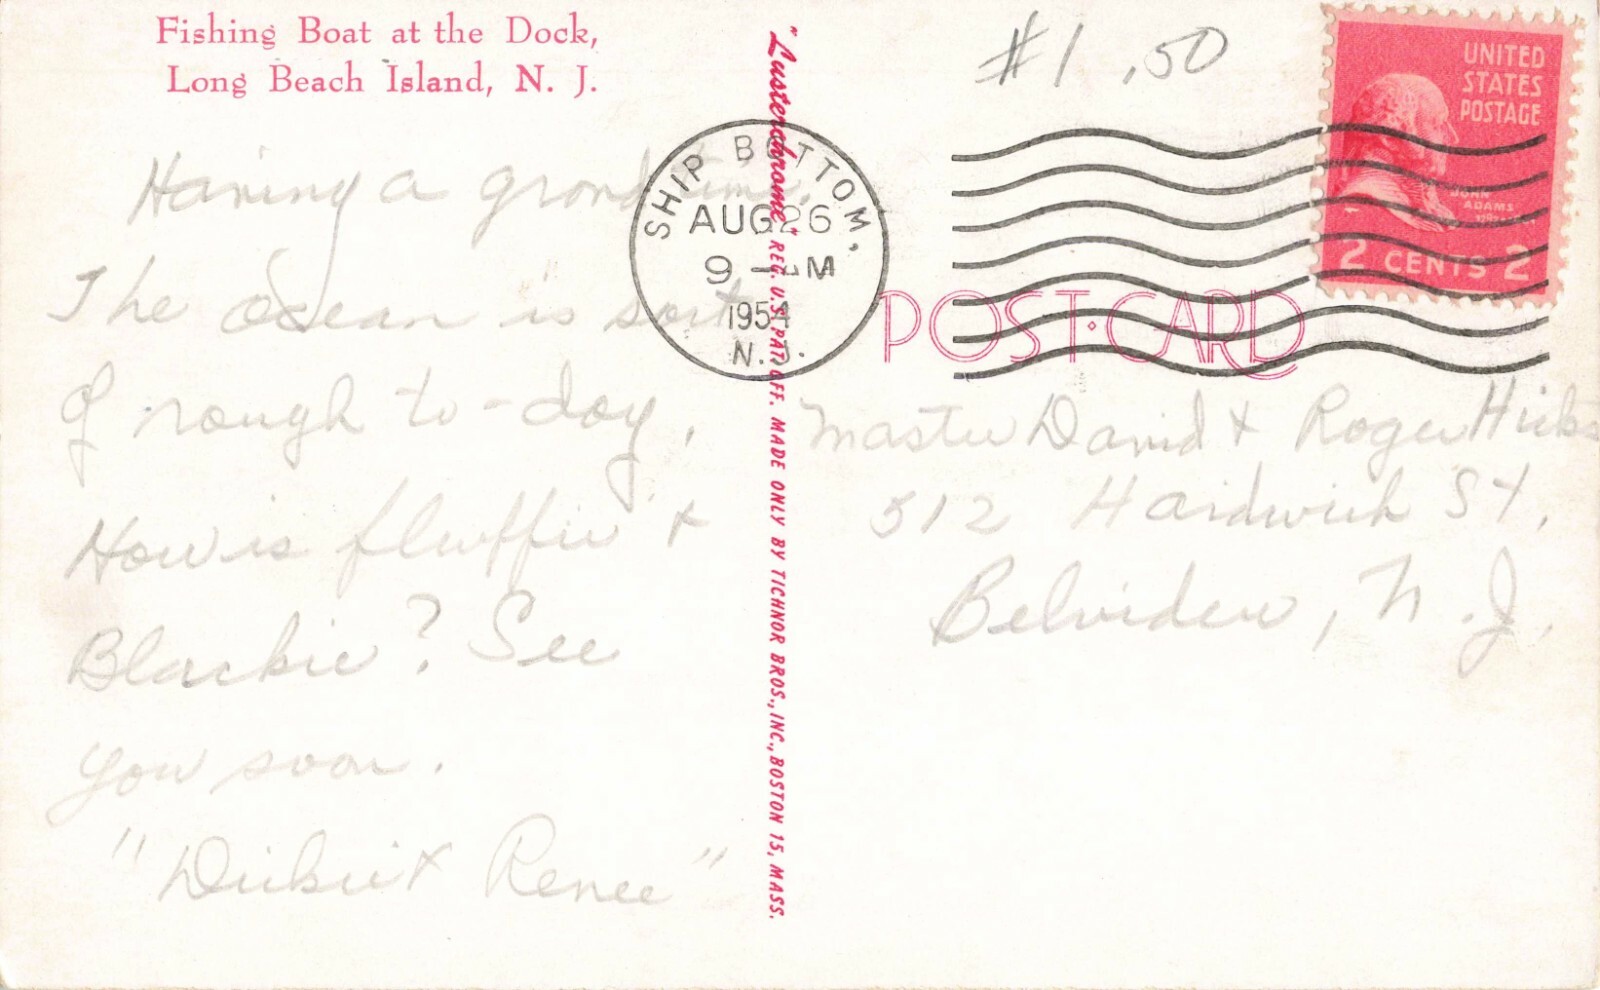 Fishing Boat at the Dock,
Long Beach Island, N. J.
Having a grand time.
The Ocean is sort
of rough to-day.
How is fluffie &
Blackie? See
you soon.
"Dickie & Renee"
"Lusterchrome" REG. U.S. PAT. OFF. MADE ONLY BY TICHNOR BROS., INC., BOSTON 15, MASS.
#1.50
SHIP BOTTOM,
AUG 26
9 - M
1954
N.J.
UNITED
STATES
POSTAGE
JOHN
ADAMS
2 CENTS 2
POST·CARD
Master David & Roger Hicks
512 Hardwick St.
Belvidere, N.J.